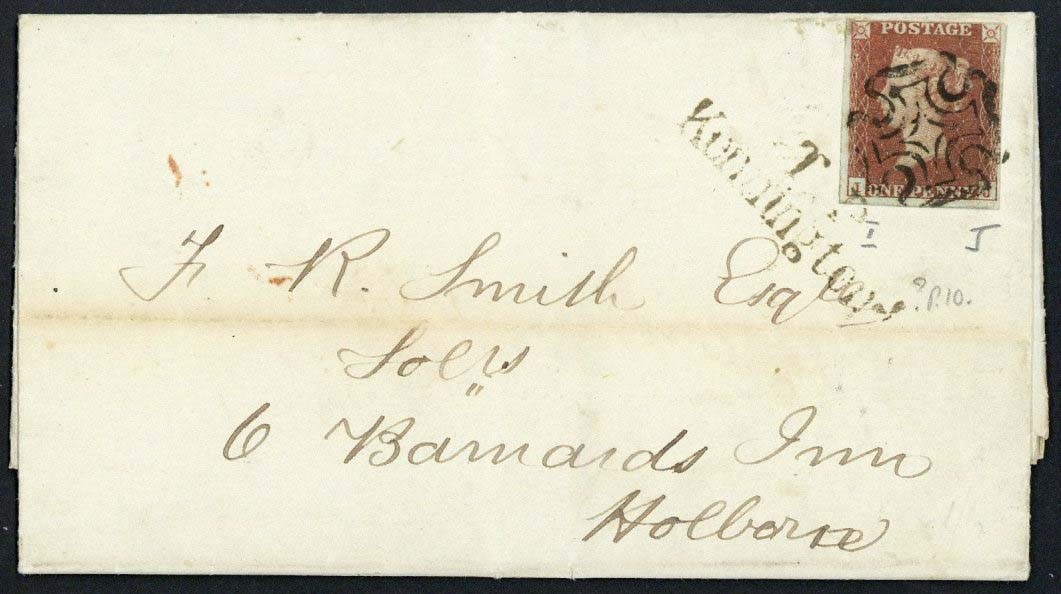 POSTAGE
I ONE PENNY J
T.P
Kennington
I J
? P.10.
F R Smith Esqre
Solrs
6 Barnards Inn
Holborne